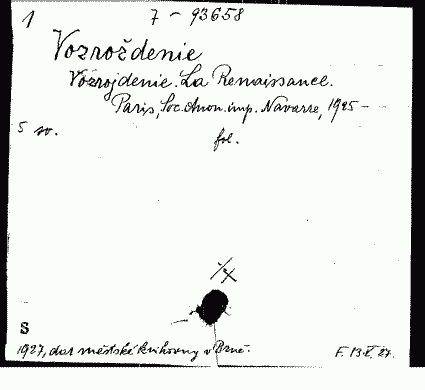 1 7 - 93658
Vozroždenie
Vozrojdenie. La Renaissance.
Paris, Soc. Anon. imp. Navarre, 1925 -
5 sv. fol.
S
1927, dar městské knihovny v Brně. F. 13.X. 27.